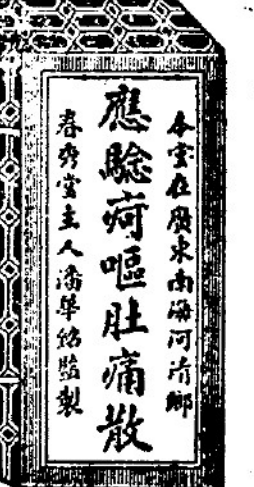 本堂在廣東南海河清鄉
應驗疴嘔肚痛散
春秀堂主人潘華鉿監製